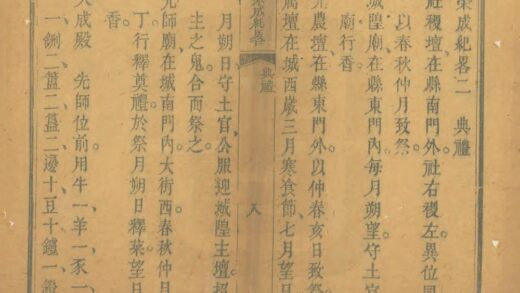 榮成紀畧二 典禮
社稷壇在縣南門外社右稷左異位同
以春秋仲月致祭
城隍廟在縣東門內每月朔望守土官
廟行香
先農壇在縣東門外以仲春亥日致祭
厲壇在城西歲三月寒食節七月望日
榮成紀畧 典禮 八
月朔日守土官公服迎城隍主壇招
主之鬼合而祭之
先師廟在城南門內大街西春秋仲月
丁行釋奠禮於祭月朔日釋菜望日
香
大成殿 先師位前用牛一羊一豕一
一鉶二簠二簋二籩十豆十鑪一鐙